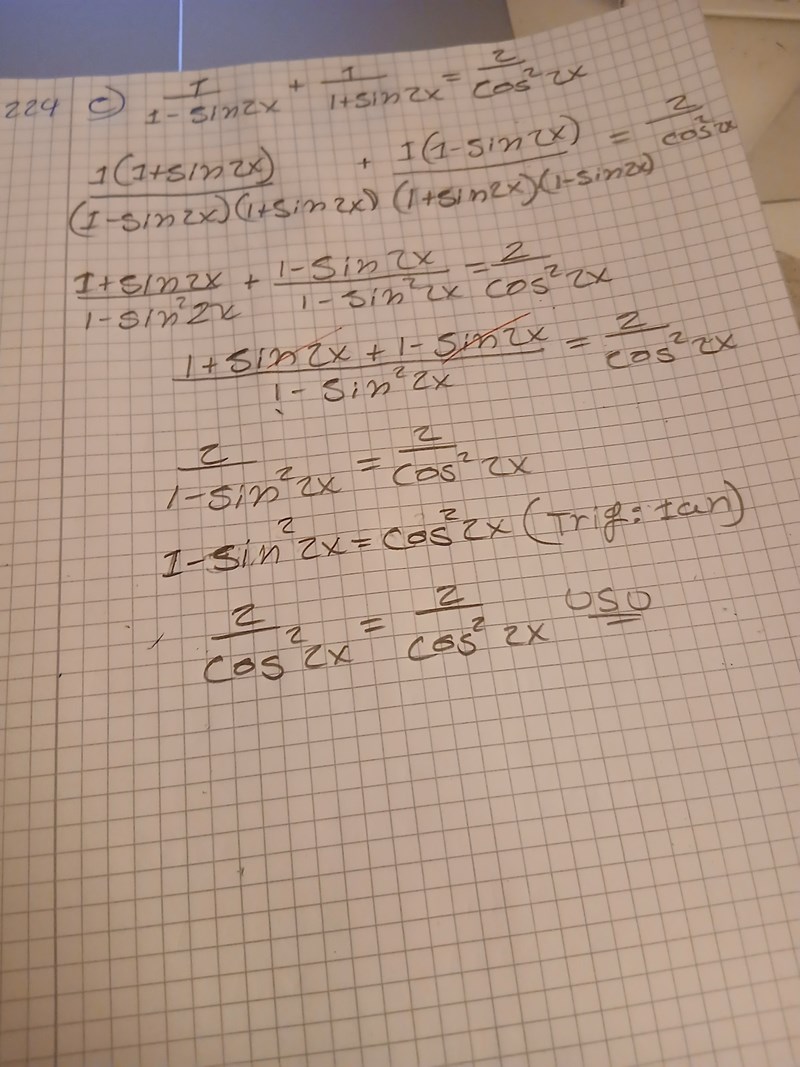 224 c) 1/(1-sin2x) + 1/(1+sin2x) = 2/cos²2x
1(1+sin2x)/((1-sin2x)(1+sin2x)) + 1(1-sin2x)/((1+sin2x)(1-sin2x)) = 2/cos²2x
(1+sin2x)/(1-sin²2x) + (1-sin2x)/(1-sin²2x) = 2/cos²2x
(1+sin2x+1-sin2x)/(1-sin²2x) = 2/cos²2x
2/(1-sin²2x) = 2/cos²2x
1-sin²2x = cos²2x (Trig: tan)
2/cos²2x = 2/cos²2x USU